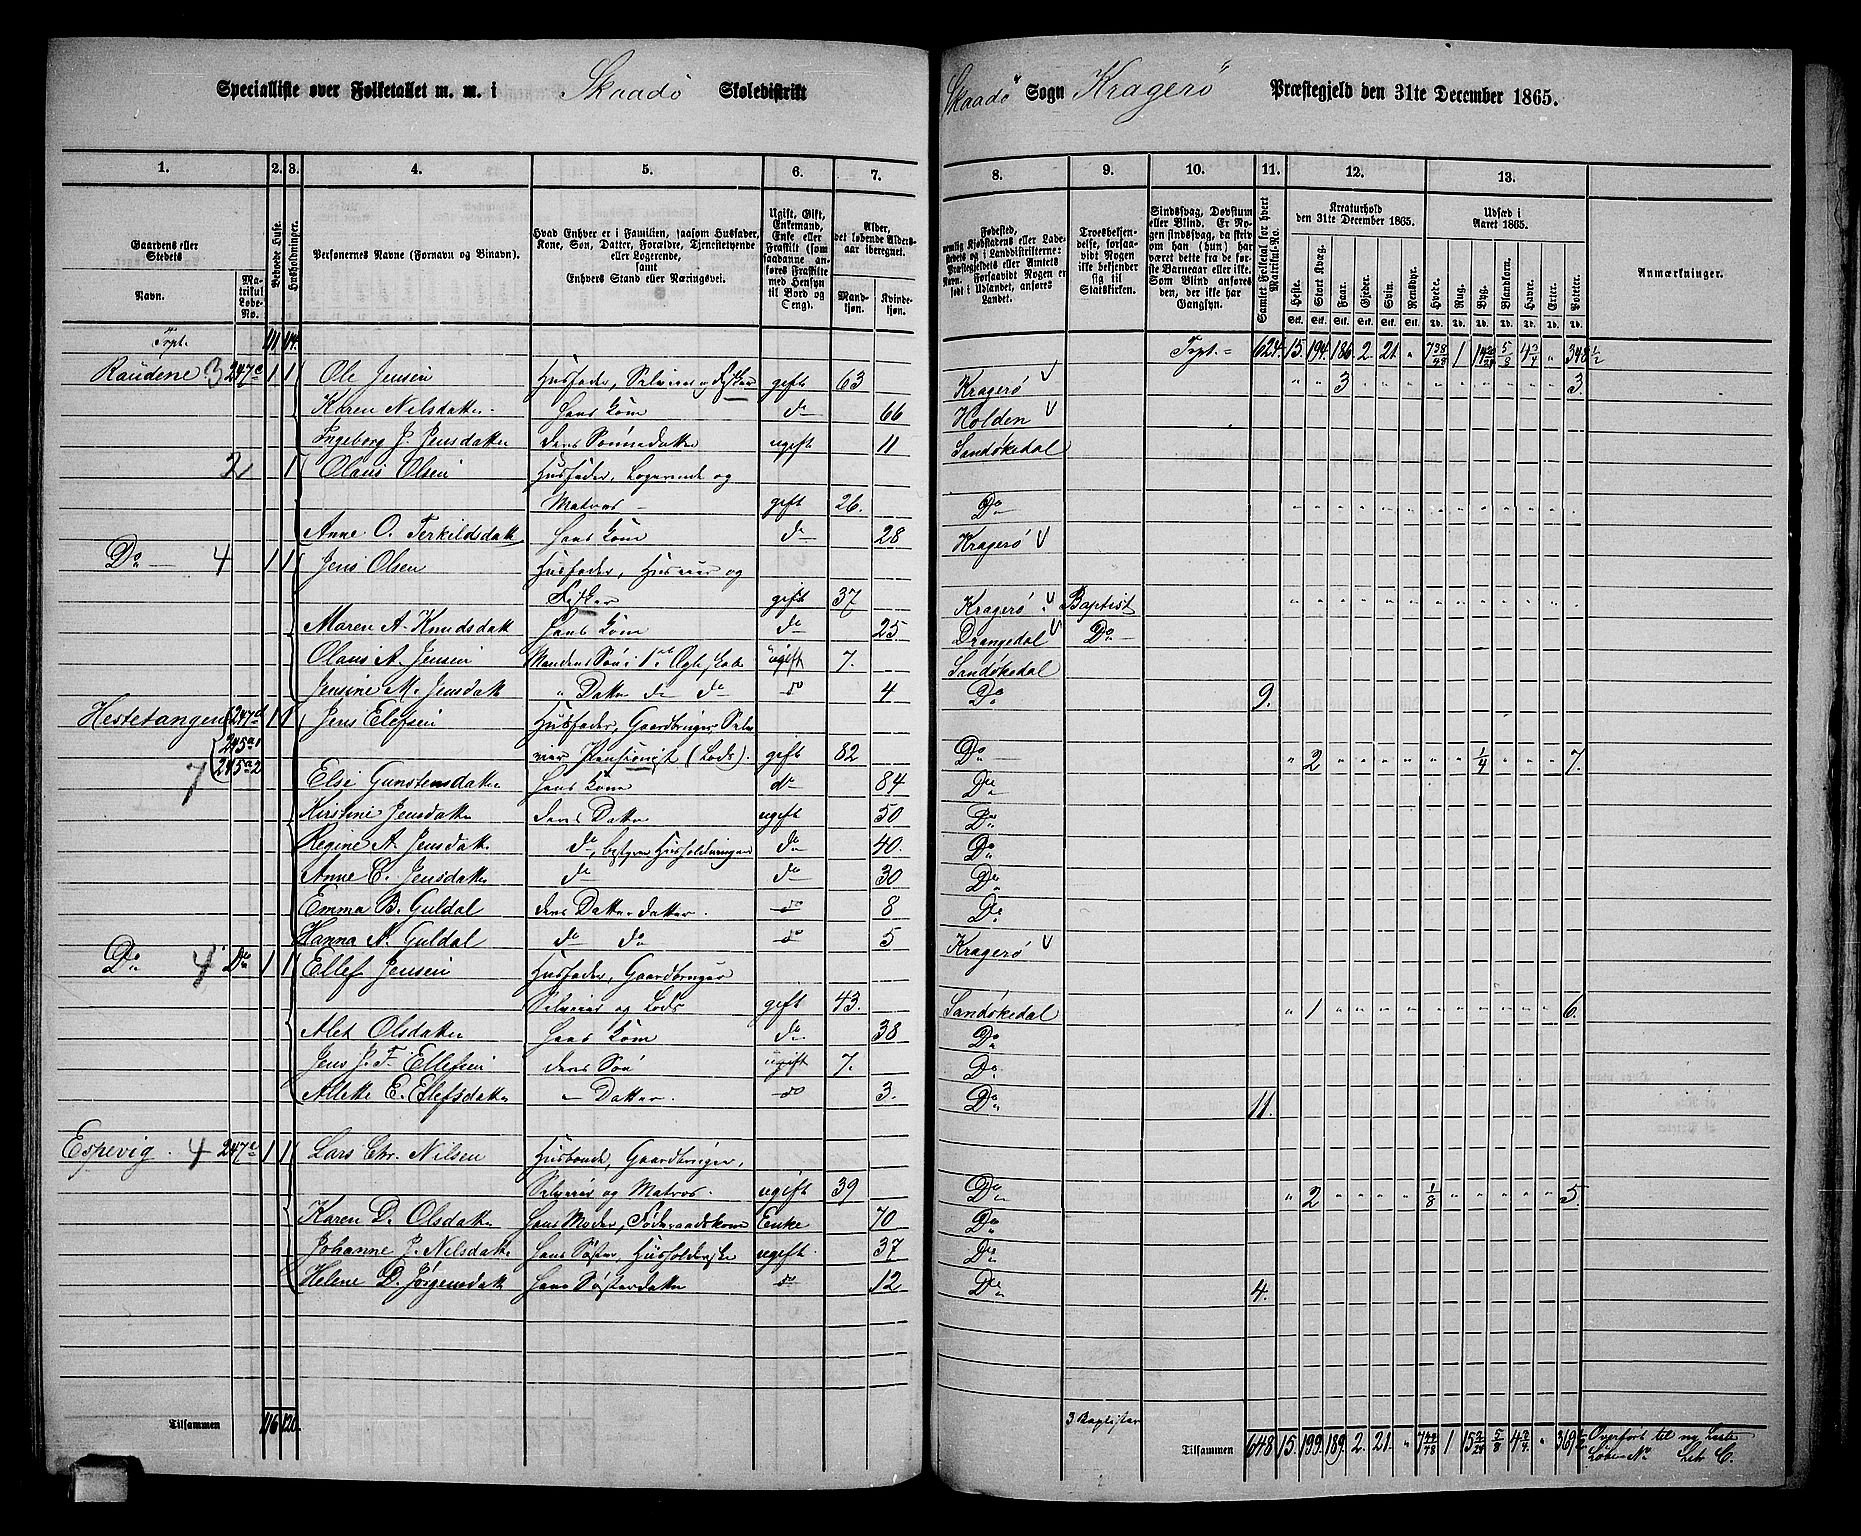 Specialliste over Folketallet m. m. i Skaadø Skoledistrikt
Skaadø Sogn Kragerø Præstegjeld den 31te December 1865.
1. 2. 3. 4. 5. 6. 7.
8. 9. 10. 11. 12. 13.
Gaardens eller Stedets
Navn.
Matrikul Løbe-No.
Beboede Huse.
Husholdninger.
Personernes Navne (Fornavn og Binavn).
Hvad Enhver er i Familien, saasom Husfader, Kone, Søn, Datter, Forældre, Tjenestetyende eller Logerende, samt Enhvers Stand eller Næringsvei.
Ugift, Gift, Enkemand, Enke eller Fraskilt (som saadanne anføres Fraskilte med Hensyn til Bord og Seng).
Alder, det løbende Aldersaar iberegnet.
Mandkjøn.
Kvindekjøn.
Troesbekjendelse, forsaavidt Nogen ikke bekjender sig til Statskirken.
Samlet Folketal for hvert Matrikul-No.
Kreaturhold den 31te December 1865.
Udsæd i Aaret 1865.
Heste. Stort Kvæg. Faar. Gjeder. Svin. Rensdyr. Hvede. Rug. Byg. Blandkorn. Havre. Erter. Poteter.
Anmærkninger.
Trpt. 111 114 Trpt. 624 15. 194 186 2. 21. " 7 38/48 1
Raudene 3 247c 1 1 Ole Jensen Husfader, Selveier og Fisker gift 63 Kragerø " " 3 3.
Karen Nilsdatter Hans Kone do 66 Holden
Ingeborg J. Jensdatter deres Sønnedatter ugift 11 Sandøkedal
2 1 Olaus Olsen Husfader, Logerende og
Matros gift 26. Do
Anne O. Terkildsdatt Hans Kone do 28 Kragerø
Do 4 1 1 Jens Olsen Husfader, Huseier og
Fisker gift 37 Kragerø Baptist
Maren A. Knudsdatt Hans Kone do 25 Drangedal Do
Olaus A. Jensen Mandens Søn i 1ste Ægteskab ugift 7. Sandøkedal
Jensine M. Jensdatt " Datter do do do 4 Do 9.
Hestetangen 247d 1 1 Jens Elefsen Husfader, Gaardbruger, Selv
245a1 eier Pensionist (Lods). gift 82 Do " 2 1/4 7.
7 245a2 Else Gunstensdatter Hans Kone do 84 Do
Kirstine Jensdatter deres Datter ugift 50 Do
Regine A. Jensdatt. do, bestyrer Husholdningen do 40 Do
Anne C. Jensdatter do do 30 Do
Emma B. Guldal deres Datterdatter. do 8 Do
Hanna N. Guldal do do do 5 Kragerø
Do 4 Do 1 1 Ellef Jensen Husfader, Gaardbruger
Selveier og Lods gift 43. Sandøkedal " 1 6.
Alet Olsdatter Hans Kone do 38 Do
Jens J. F. Ellefsen deres Søn ugift 7. Do
Alette E. Ellefsdatter " Datter. do 3. Do 11.
Espevig. 4 247e 1 1 Lars Chr. Nilsen Husbonde, Gaardbruger,
Selveier og Matros. ugift 39 Do " 2 1/8 5.
Karen D. Olsdatter Hans Moder, Føderaadskone Enke 70 Do
Johanne J. Nilsdatter Hans Søster, Husholderske ugift 37 Do
Helene D. Jörgensdatt Hans Søsterdatter do 12 Do 4.
3 Baptister
Tilsammen 116 120
Tilsammen 648 15. 199 189. 2. 21. " 1
Overført til ny Liste
Løbe No Litr C.